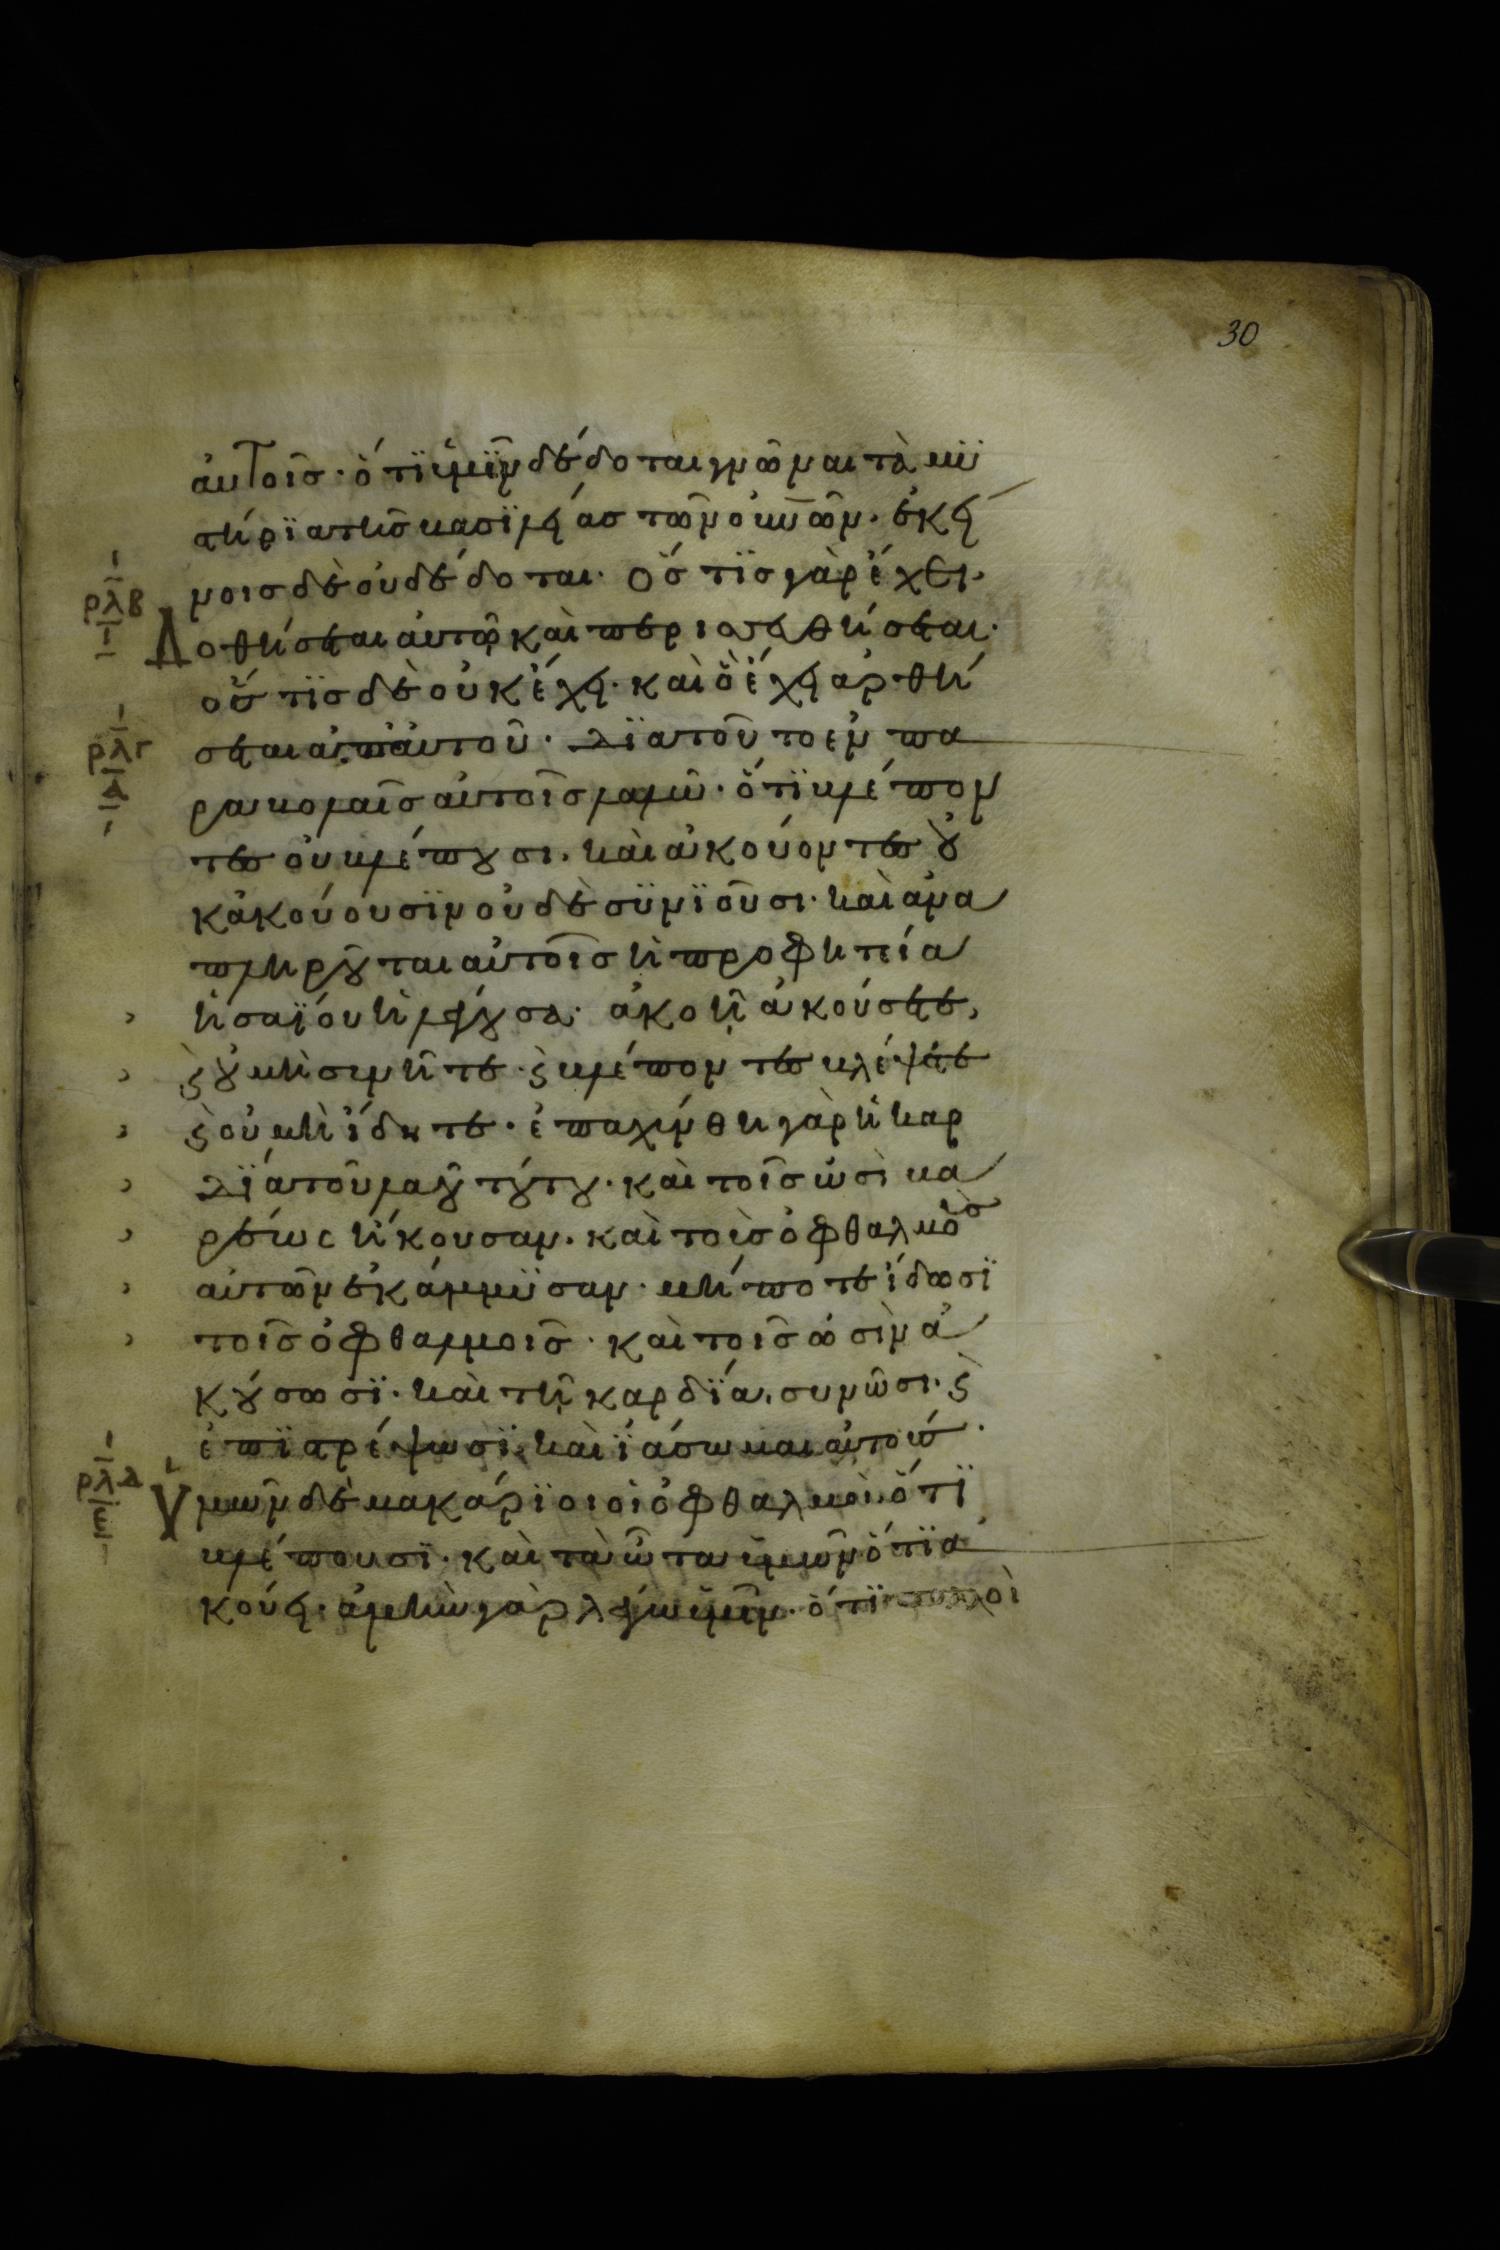 30
αὐτοῖς· ὅτϊ ὑμῖν δέδοται γνῶναι τὰ μϋ
στήρϊα τῆς βασϊλείας τῶν οὐνῶν· ἐκεί
νοις δὲ οὐ δέδοται· Ὅστϊς γὰρ ἔχει·
ρλβ
Δοθήσεται αὐτῷ καὶ περισσευθήσεται·
ὅστϊς δὲ οὐκ ἔχει· καὶ ὃ ἔχει ἀρθή
ρλγ
σεται ἀπ' αὐτοῦ· Διατοῦτο ἐν πα
ραβολαῖς αὐτοῖς λαλῶ· ὅτϊ βλέπον
τες οὐ βλέπουσι· καὶ ἀκούοντες οὐ
κ ἀκούουσϊν οὐδὲ συνϊοῦσι· καὶ ἀνα
πληροῦται αὐτοῖς ἡ προφητεία
ἡσαΐου ἡ λέγουσα· ἀκοῇ ἀκούσετε,
ϗ οὐ μὴ συνῆτε· ϗ βλέποντες βλέψετε
ϗ οὐ μὴ ἴδητε· ἐπαχύνθη γὰρ ἡ καρ
δΐα τοῦ λαοῦ τούτου· καὶ τοῖς ὠσὶ βα
ρέως ἤκουσαν· καὶ τοὺς ὀφθαλμοὺς
αὐτῶν ἐκάμμϋσαν· μήποτε ἴδωσϊ
τοῖς ὀφθαλμοῖς· καὶ τοῖς ὠσὶν ἀ
κούσωσϊ· καὶ τῇ καρδΐᾳ, συνῶσι· ϗ
ἐπϊστρέψωσϊ, καὶ ϊάσωμαι αὐτούς·
ρλδ
Ὑμῶν δὲ μακάρϊοι οἱ ὀφθαλμοὶ· ὅτϊ
ε
βλέπουσϊ· καὶ τὰ ὦτα ὑμῶν ὅτϊ ἀ
κούει· ἀμὴν γὰρ λέγω ὑμῖν· ὅτϊ πολλοὶ